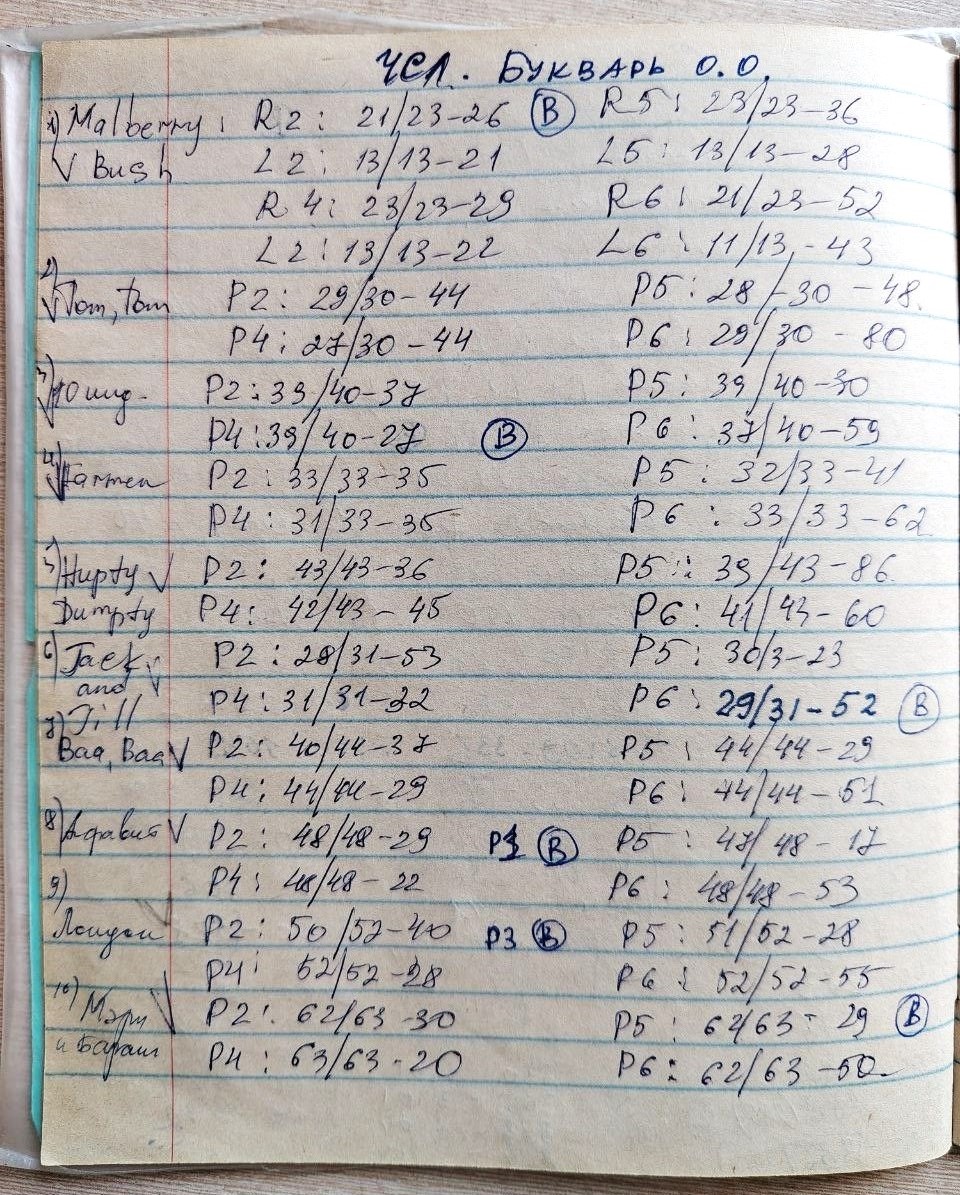 ЧСЛ. БУКВАРЬ О.О.
1) Malberry: R2: 21/23-26 (В) R5: 23/23-36
√ Bush L2: 13/13-21 L5: 13/13-28
R4: 23/23-29 R6: 21/23-52
L2: 13/13-22 L6: 11/13-43
2) √ Tom, Tom P2: 29/30-44 P5: 28/-30-48.
P4: 27/30-44 P6: 29/30-80
3) √ P2: 39/40-37 P5: 39/40-30
P4: 39/40-27 (В) P6: 37/40-59
4) √ P2: 33/33-35 P5: 32/33-41
P4: 31/33-35 P6: 33/33-62
5) Hupty √ P2: 43/43-36 P5: 39/43-86
Dumpty P4: 42/43-45 P6: 41/43-60
6) Jack √ P2: 28/31-53 P5: 30/3-23
and P4: 31/31-22 P6: 29/31-52 (В)
Jill
7) Baa, Baa √ P2: 40/44-37 P5: 44/44-29
P4: 44/44-29 P6: 44/44-51
8) Алфавит √ P2: 48/48-29 P1 (В) P5: 47/48-17
P4: 48/48-22 P6: 48/48-53
9) Лондон √ P2: 50/52-40 P3 (В) P5: 51/52-28
P4: 52/52-28 P6: 52/52-55
10) Мэри √ P2: 62/63-30 P5: 62/63-29 (В)
и Бараш P4: 63/63-20 P6: 62/63-50